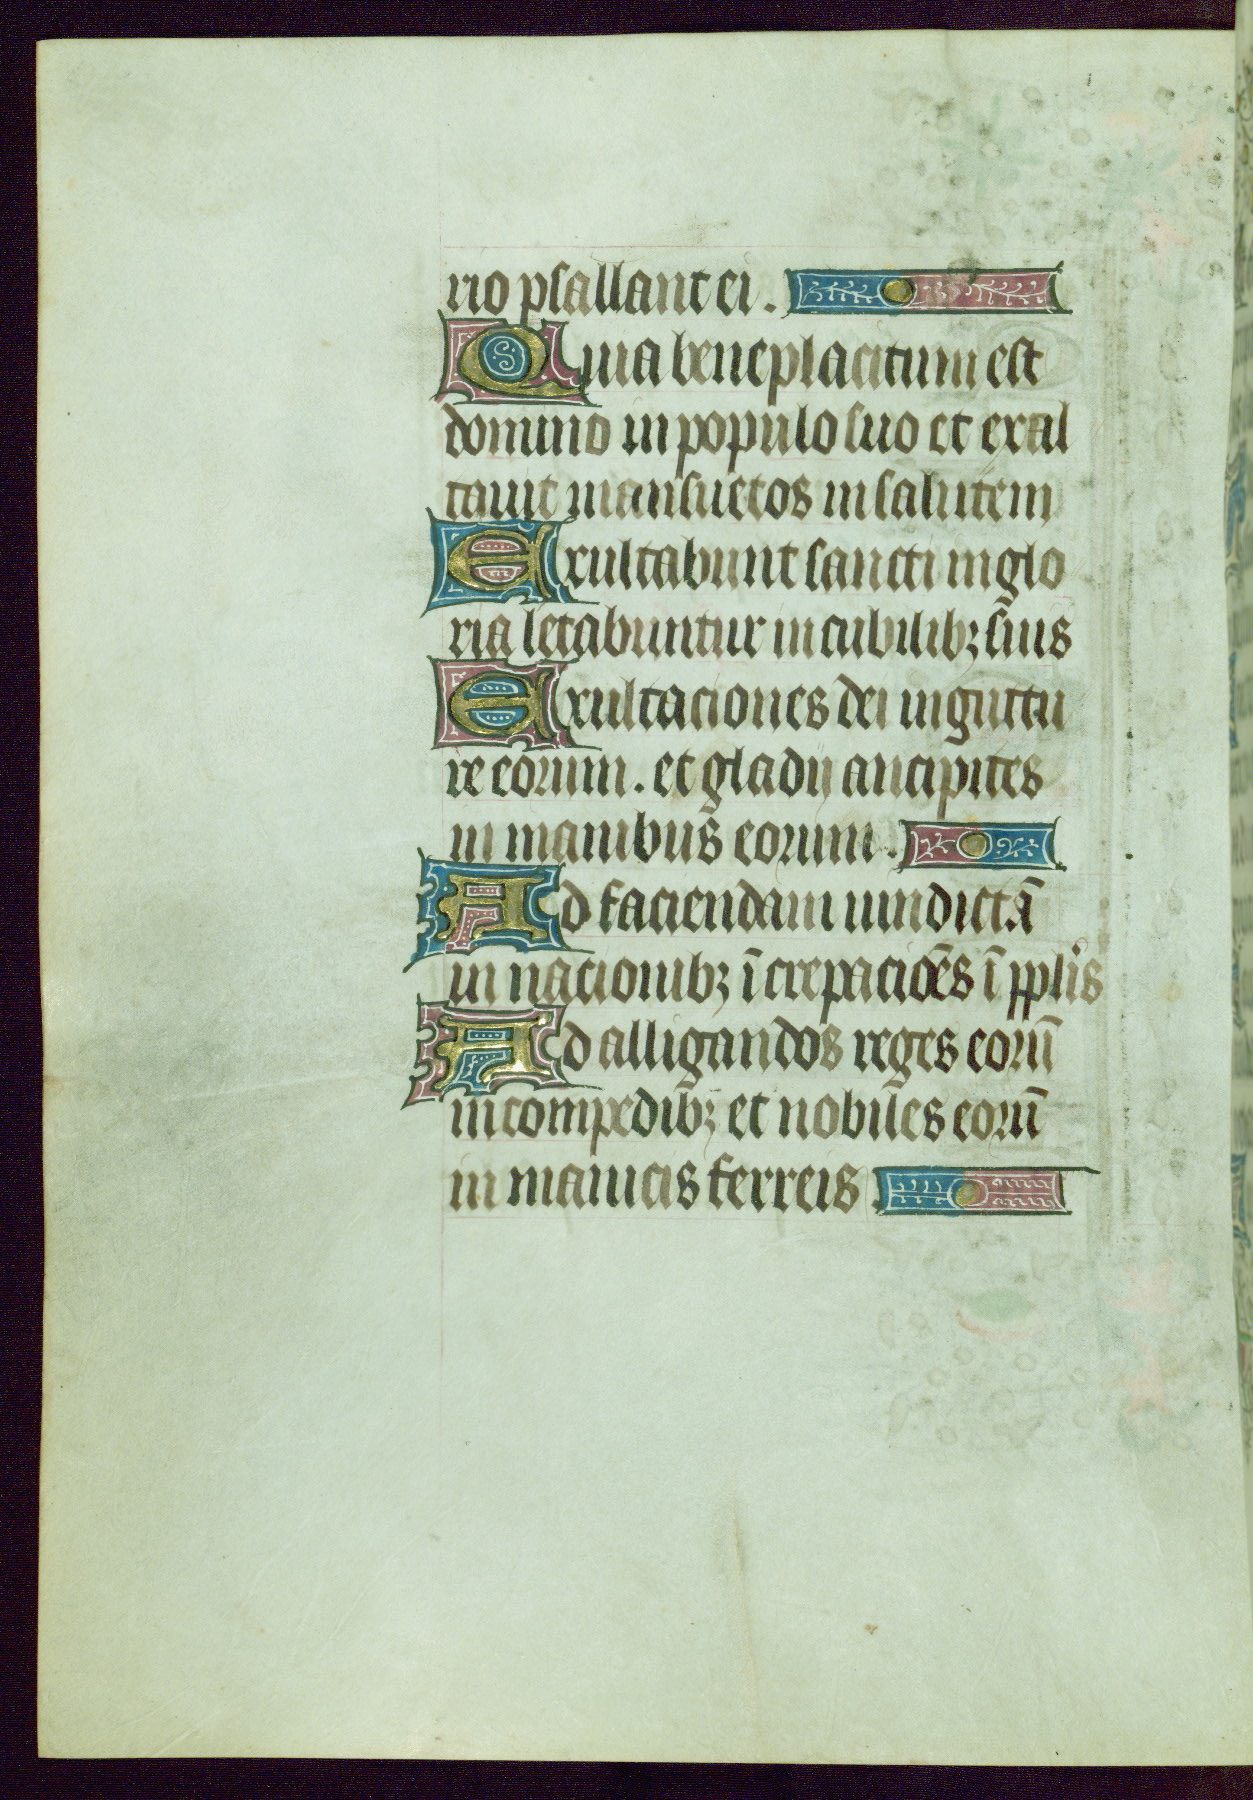 rio psallant ei.
Quia beneplacitum est
domino in populo suo et exal
tauit mansuetos in salutem
Exultabunt sancti in glo
ria letabuntur in cubilibꝫ suis
Exultaciones dei in guttu
re eorum. et gladii ancipites
in manibus eorum.
Ad faciendam uindictā
in nacionibꝫ īcrepaciōēs ī pplis
Ad alligandos reges eorū
in compedibꝫ et nobiles eorū
in manicis ferreis